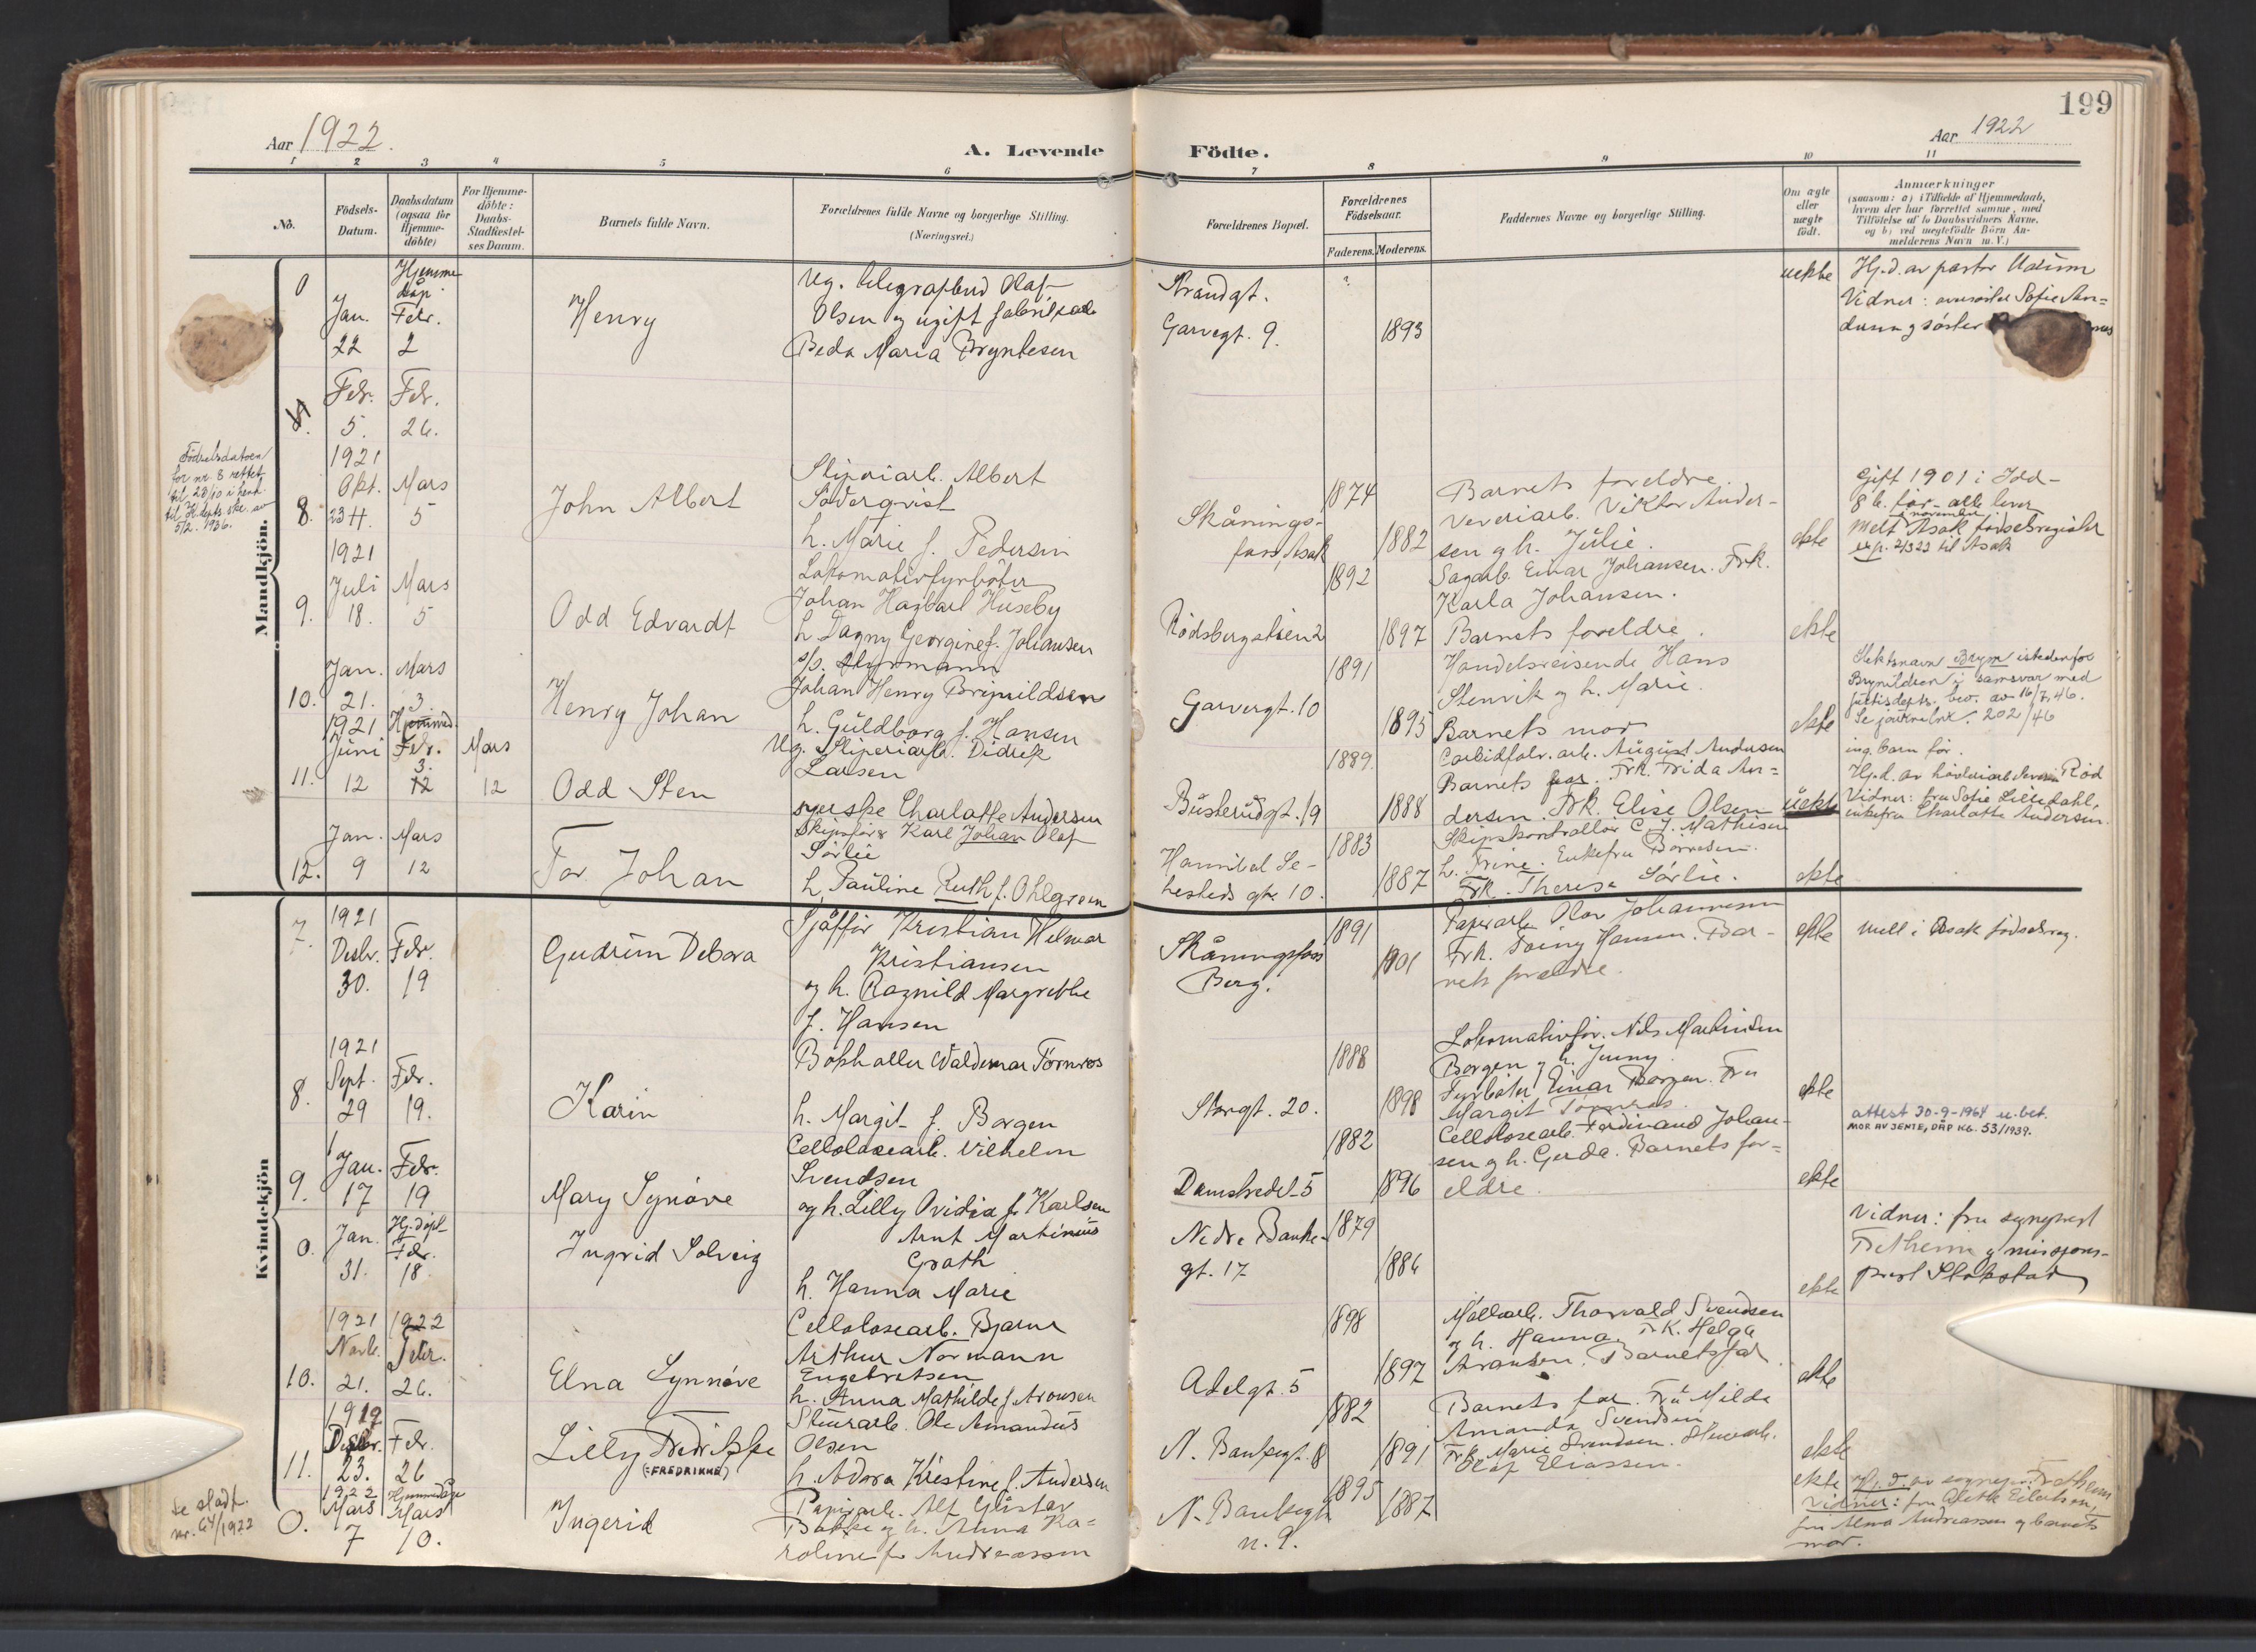 199
Aar 1922.
A. Levende
Födte.
Aar 1922
1 2 3 4 5 6 7 8 9 10 11
No.
Födsels-
Datum.
Daabsdatum
(ogsaa for
Hjemme-
döbte)
For Hjemme-
döbte:
Daabs-
Stadfæstel-
ses Datum.
Barnets fulde Navn.
Forældrenes fulde Navne og borgerlige Stilling.
(Næringsvei.)
Forældrenes Bopæl.
Forældrenes
Födselsaar.
Faderens. Moderens.
Faddernes Navne og borgerlige Stilling.
Om ægte
eller
uægte
födt.
Anmærkninger
(saasom: a) i Tilfælde af Hjemmedaab,
hvem der har forrettet samme, med
Tilföielse af to Daabsvidners Navne,
og b) ved uægtefödte Börn An-
melderens Navn m. V.)
Mandkjön.
0
Jan.
22
Hjemme
dåp.
Febr.
2
Henry
Ug. telegrafbud Olaf
Olsen og ugift fabrikarb
Beda Maria Bryntesen
Strandgt.
Garvergt. 9.
?
1893
uekte
Hj.d. av pastor
Vidner: Sofie An-
dersen og söster
Febr. Febr.
5. 26.
Födselsdatoen
for nr. 8 rettet
til 28/10 i henh.
til K.depts skr. av
5/2. 1936.
8.
1921
Okt.
23
Mars
5
John Albert
Sliperiarb. Albert
Söderqvist
h. Marie f. Pedersen
Skånings-
foss, Asak
1874
1882
Barnets foreldre.
Veveriarb. Viktor Ander-
sen og h. Julie.
ekte
Gift 1901 i Idd-
8 b. før - alle lever
i november
Melt Asak fødselsregister
til Asak
9.
1921
Juli
18.
Mars
5
Odd Edvardt
Lokomotivfyrböter
Johan Hagbart Huseby
h. Dagny Georgine f. Johansen
Rödsbergstien 2
1892
1897
Sagarb. Einar Johansen. Frk.
Karla Johansen.
Barnets foreldre.
ekte
10.
Jan.
21.
Mars
3.
Henry Johan
s/s. styrmann
Johan Henry Brynildsen
h. Guldborg f. Hansen
Garvergt. 10
1891
1895
Handelsreisende Hans
Stenvik og h. Marie.
Barnets mor
ekte
Slektsnavn Brym istedenfor
Brynildsen i samsvar med
justisdepts. bev. av 16/7.46.
Se journalnr. 202/46
11.
1921
Juni
12
Hjemmed.
Febr.
3.
12
Mars
12
Odd Sten
Ug. Sliperiarb. Didrik
Larsen
syerske Charlotte Andersen
Busterudgt. 19
1889.
1888
Carbidfabr. arb. August Andersen
Barnets far. Frk. Frida An=
dersen. Frk. Elise Olsen
uekte
ing. barn før.
Hj.d. av Röd
Vidner: fru Sofie Lilledahl,
enkefru Charlotte Andersen.
12.
Jan.
9
Mars
12
Tor Johan
Skipsförer Karl Johan Olaf
Sörlie
h. Pauline Ruth f. Ohlgren
Hannibal Se-
hesteds gt. 10.
1883
1887
Skipskontrollör C. J. Mathisen
h. Trine. Enkefru
Frk. Therese Sörlie.
ekte
Kvindekjön
7.
1921
Desbr.
30.
Febr.
19
Gudrun Debora
Sjåffør Kristian Helmar
Kristiansen
og h. Ragnild Margrethe
f. Hansen
Skåningsfoss
Berg.
1891
1901
Papirarb. Olav Johannesen
Frk. Hansen. Bar-
nets foreldre.
ekte
melt i Asak fødselsreg.
8.
1921
Sept.
29
Febr.
19.
Karin
Bokholder Waldemar Törnros
h. Margit f. Borgen
Storgt. 20.
1888
1898
Lokomotivför. Nils Martinsen
Borgen og h. Jenny.
Fyrböter Einar Borgen. Fru
Margit Törnros.
ekte
attest 30-9-1964 u. bet.
MOR AV JENTE, DÅP KB. 53/1939.
9.
Jan.
17
Febr.
19
Mary Synöve
Cellolosearb. Vilhelm
Svendsen
og h. Lilly Ovidia f. Karlsen
Damstredet 5
1882
1896
Cellolosearb. Ferdinand Johan-
sen og h. Gerda. Barnets for=
eldre.
ekte
0.
Jan.
31.
Hj. döpt
Febr.
18
Ingrid Solveig
Arnt Martinius
Grath
h. Hanna Marie
Nedre Banke-
gt. 17
1879
1886
ekte
Vidner: fru sogneprest
Tretheim og misjons-
prest Stokstad
10.
1921
Novb.
21.
1922
Febr.
26.
Elna Synnöve
Cellolosearb. Bjarne
Arthur Normann
Engebretsen
h. Anna Mathilde f. Aronsen
Adelgt. 5
1898
1897
Möllearb. Thorvald Svendsen
og h. Hanna. Frk. Helga
Aronsen. Barnets far.
ekte
11.
1919
Desbr.
23.
Febr.
26
Lilly Fredrikke
(=FREDRIKKE)
Stuerarb. Ole Amandus
Olsen
h. Adora Kristine f. Andersen
N. Bankegt. 8
1882
1891
Barnets far. Fru Milda
Amanda Svendsen
Frk. Marie Svendsen. Stuerarb.
Olaf Eliassen.
ekte
se stadf.
nr. 64/1922
0.
1922
Mars
7
Hjemmedöpt
Mars
10.
Ingerid
Papirarb. Alf Gustav
Bakke og h. Anna Ka=
roline f. Andreassen
N. Bankegt
n. 9.
1895
1887
ekte
Hj. d. av sognepr. Tretheim
Vidner: fru Eilertsen,
fru Alma Andreassen og barnets
mor.